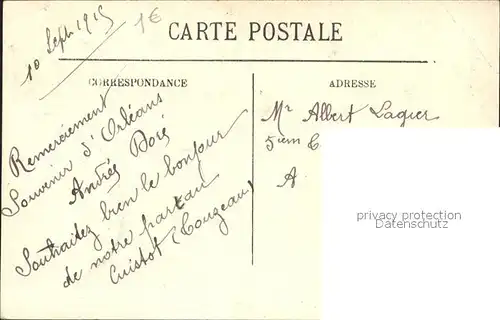 10 Sept 1915
1€
CARTE POSTALE
CORRESPONDANCE
Remerciement
Souvenir d'Orléans
Andrés Doré
Souhaitez bien le bonjour
de notre part au
Cuistot (Cougeau)
ADRESSE
Mr Albert Lagier
5iem C
A
privacy protection
Datenschutz